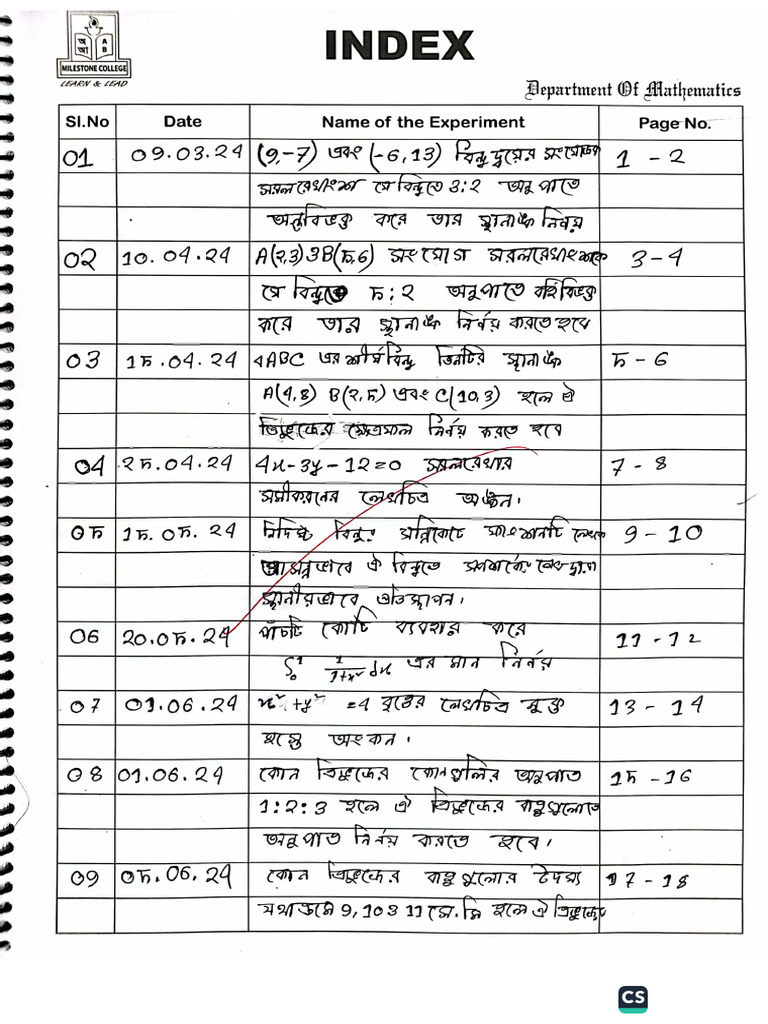 অ A
আ B
MILESTONE COLLEGE
LEARN & LEAD
INDEX
Department Of Mathematics
Sl.No Date Name of the Experiment Page No.
01 09.03.24 (9,-7) এবং (-6,13) বিন্দুদ্বয়ের সংযোজক 1 - 2
সরলরেখাংশ যে বিন্দুতে 3:2 অনুপাতে
অন্তর্বিভক্ত করে তার স্থানাঙ্ক নির্ণয়
02 10.04.24 A(2,3) ও B(5,6) সংযোগ সরলরেখাংশকে 3-4
যে বিন্দুতে 5:2 অনুপাতে বহির্বিভক্ত
করে তার স্থানাঙ্ক নির্ণয় করতে হবে
03 15.04.24 ΔABC এর শীর্ষবিন্দু তিনটির স্থানাঙ্ক 5-6
A(4,8) B(2,5) এবং C(10,3) হলে ঐ
ত্রিভুজের ক্ষেত্রফল নির্ণয় করতে হবে
04 25.04.24 4x-3y-12=0 সরলরেখার 7 - 8
সমীকরনের লেখচিত্র অঙ্কন।
05 15.05.24 নির্দিষ্ট বিন্দুর সন্নিকটে ফাংশনটি 9 - 10
আসন্নভাবে ঐ বিন্দুতে স্পর্শকের দ্বারা
স্থানীয়ভাবে প্রতিস্থাপন।
06 20.05.24 পাঁচটি কোটি ব্যবহার করে 11 - 12
∫₀¹ 1/1+x² dx এর মান নির্ণয়
07 01.06.24 x²+y² =4 বৃত্তের লেখচিত্র মুক্ত 13 - 14
হস্তে অংকন।
08 01.06.24 কোন ত্রিভুজের কোনগুলির অনুপাত 15 -16
1:2:3 হলে ঐ ত্রিভুজের বাহুগুলোতে
অনুপাত নির্ণয় করতে হবে।
09 05.06.24 কোন ত্রিভুজের বাহুগুলোর দৈর্ঘ্য 17 - 18
যথাক্রমে 9, 10 ও 11 সে.মি হলে ঐ ত্রিভুজের
CS